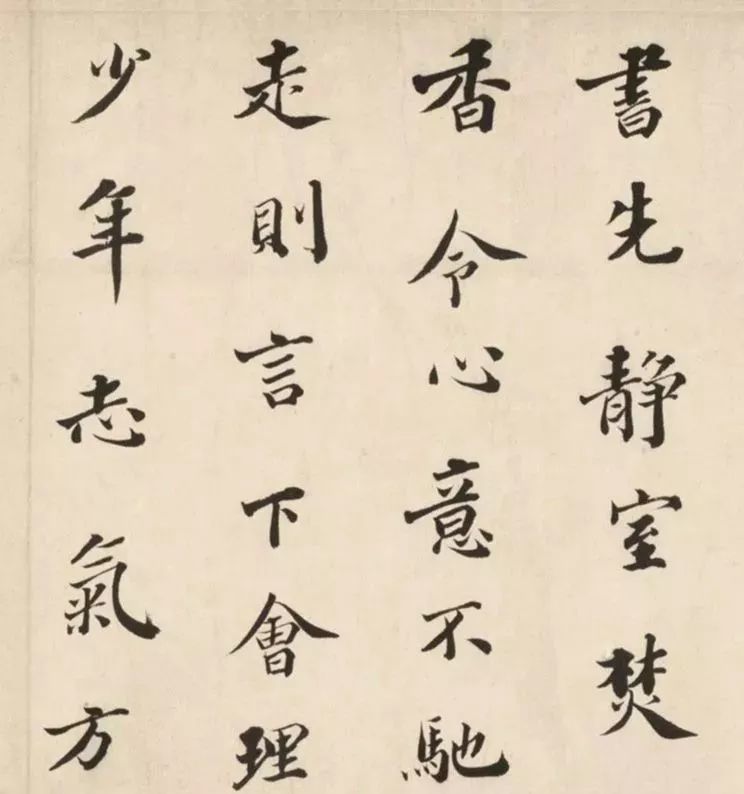 書先靜室焚
香令心意不馳
走則言下會理
少年志氣方